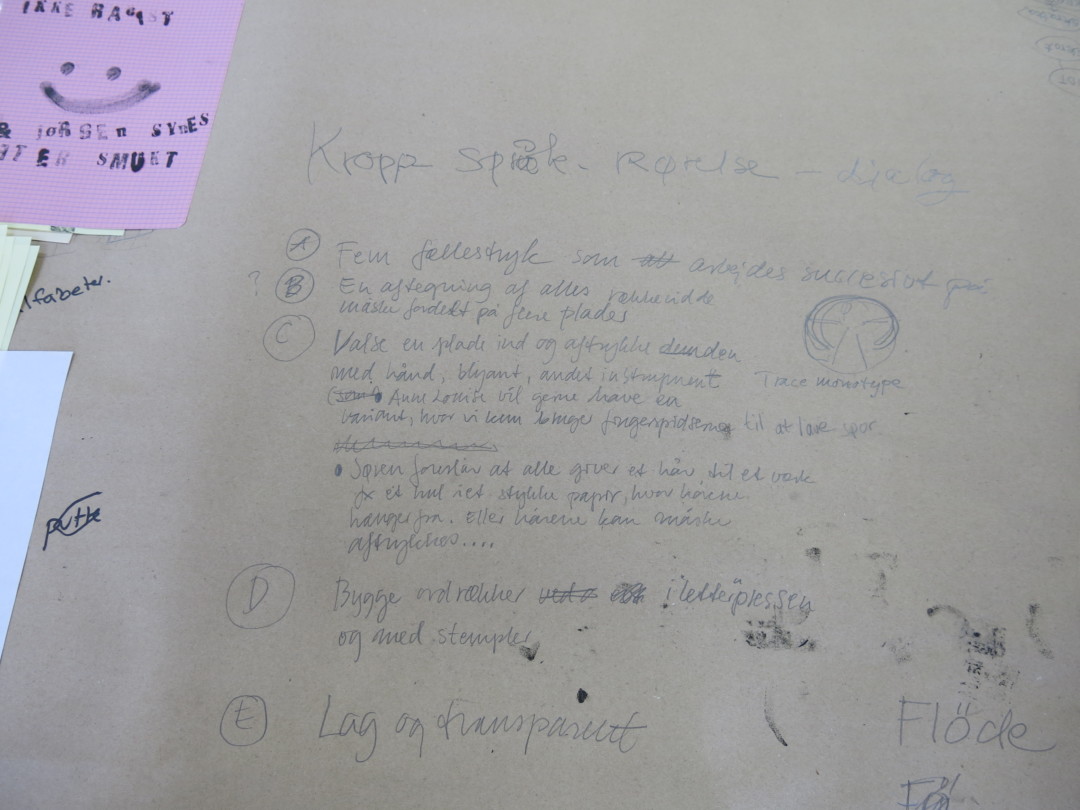 IKKE RACIST
& JØRGEN SYNES
ER SMUKT
Kropp språk - Rørelse - dialog
A Fem fællestryk som arbejdes successivt på
? B En aftegning af alles rækkevidde
måske fordelt på flere plader
C Valse en plade ind og aftrykke den
med hånd, blyant, andet instrument
Trace monotype
Anne Louise vil gerne have en
variant, hvor vi kun bruger fingerspidserne til at lave spor.
• Søren foreslår at alle giver et hår til et værk
fx et hul i et stykke papir, hvor hårene
hænger fra. Eller hårene kan måske
aftrykkes....
D Bygge ordrækker i letterpressen
og med stempler
E Lag og transparent
Flöde
lfabeter.
putte